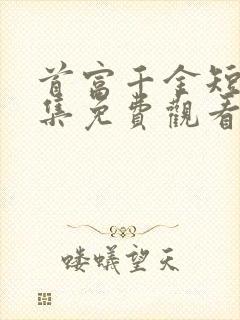 首富千金短
集免費觀看
喽蟻望天